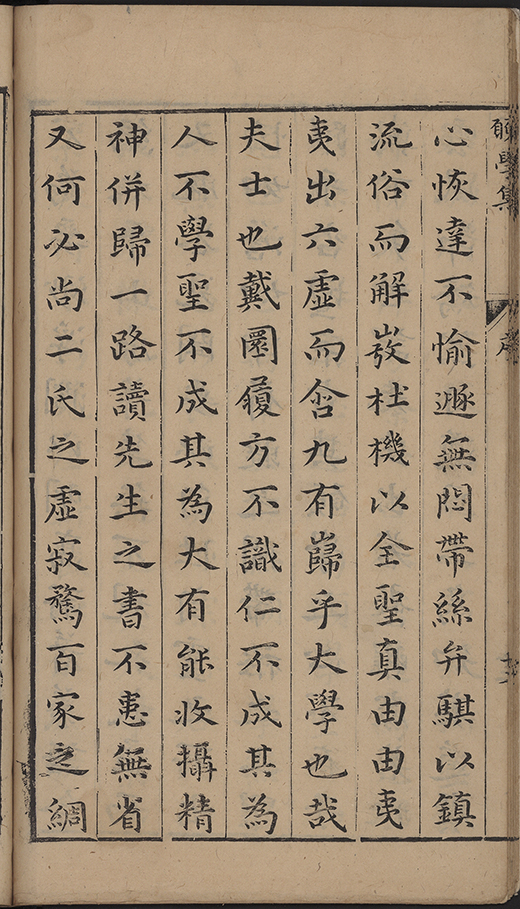 願學集
序
心恢達不愉遯無悶帶絲弁騏以鎮
流俗而解杜機以全聖真由由夷
夷出六虛而含九有巋乎大學也哉
夫士也戴圜履方不識仁不成其為
人不學聖不成其為大有能收攝精
神併歸一路讀先生之書不患無省
又何必尚二氏之虛寂騖百家之綢